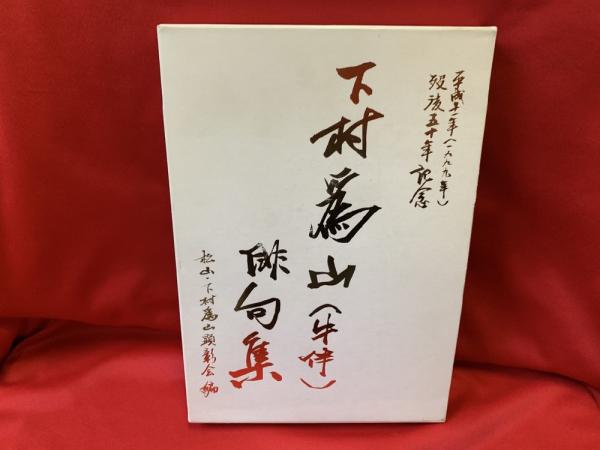 平成十一年(一九九九年)
歿後五十年記念
下村為山(牛伴)
俳句集
松山・下村為山顕彰会編